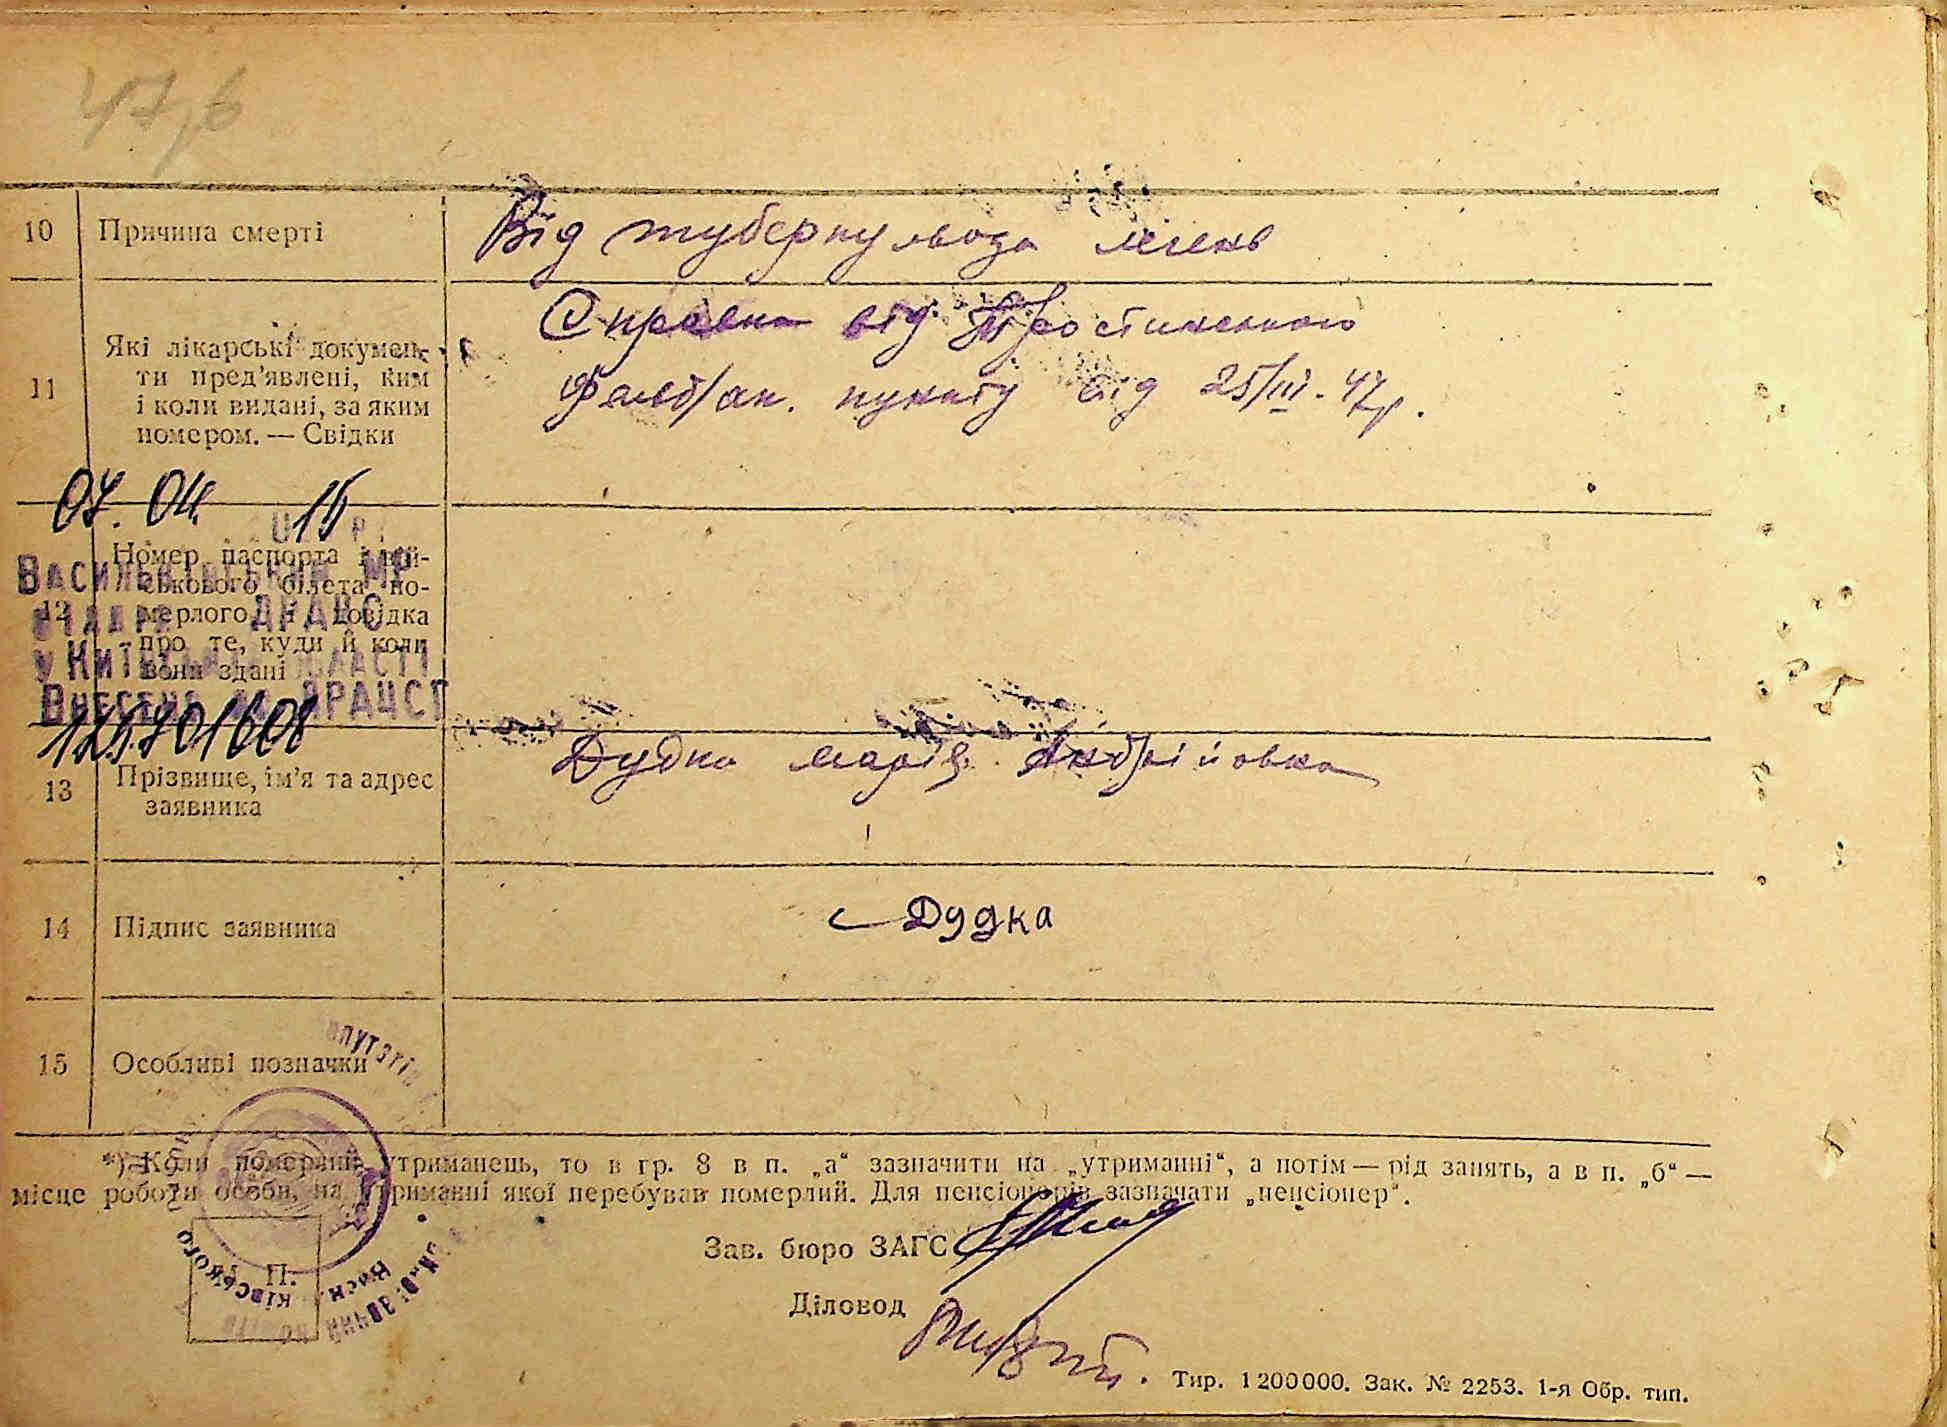 47,6
10 Причина смерті Від туберкульоза легень
11 Які лікарські докумен-
ти пред'явлені, ким
і коли видані, за яким
номером. — Свідки
Справка від
Фельд/ак. пункту від 25/III. 47р.
07. 04. 15
12 Номер паспорта і вій-
ськового білета по-
мерлого і довідка
про те, куди й коли
вони здані
Васильківський МР
ДРАЦС
у Київській області
Внесено до ДРАЦСГ
13 Прізвище, ім'я та адрес
заявника
Дудка Марія Андрійовна
14 Підпис заявника Дудка
15 Особливі позначки
*) Коли померлий утриманець, то в гр. 8 в п. „а“ зазначити на „утриманні“, а потім — рід занять, а в п. „б“ —
місце роботи особи, на утриманні якої перебував померлий. Для пенсіонерів зазначати „пенсіонер“.
Зав. бюро ЗАГС
М. П.
Діловод
Тир. 1200000. Зак. № 2253. 1-я Обр. тип.